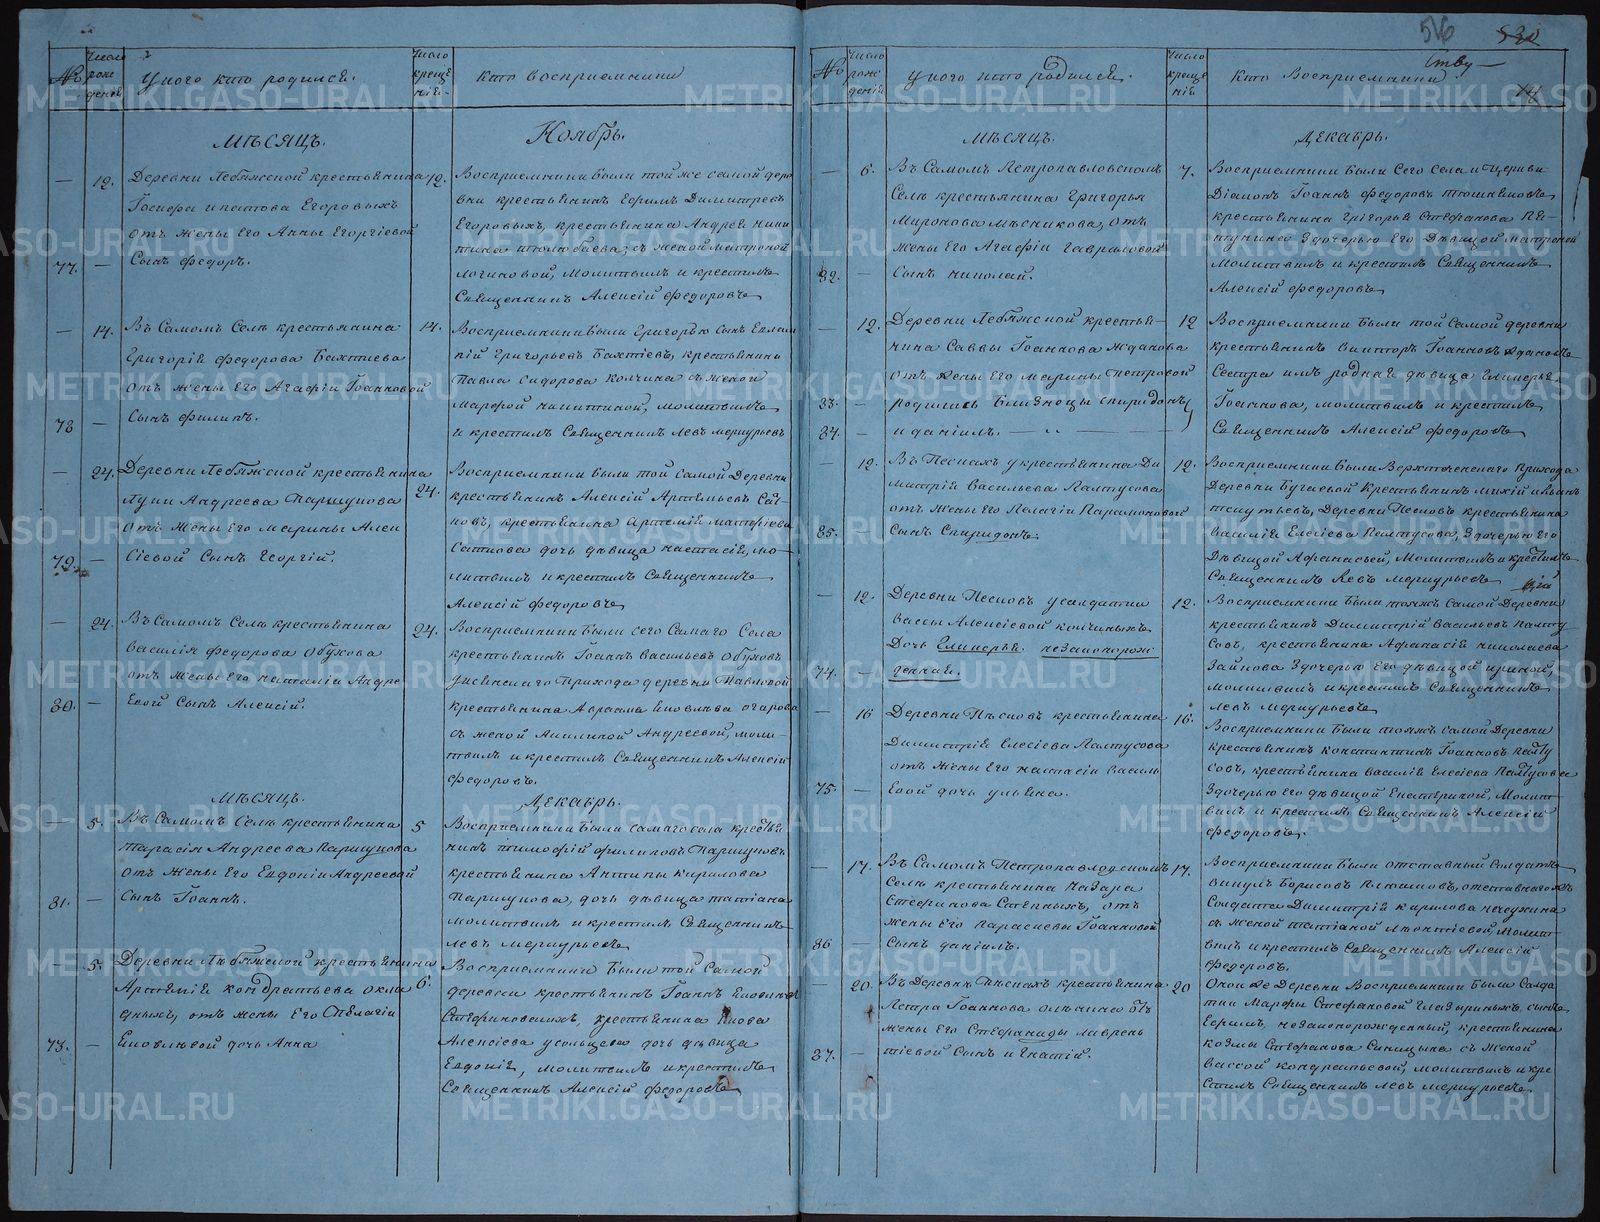 516 530
ству—
14
№ число рожденій У кого кто родился. число крещеній. кто восприемники
Мѣсяцъ. Ноябрь.
— 12. Деревни Лебяжской крестьянина
Іосифа Ипатова Егоровыхъ
отъ жены его Анны Егоргіевой
77. — Сынъ Федоръ.
12. Восприемники были той же самой дере
вни крестьянинъ Ефимъ Димитревъ
Егоровыхъ, крестьянина Андрея Ники
тина с женой матроной
Логиновой, Молитвилъ и крестилъ
Священникъ Алексій Федоровъ
— 14. Въ Самомъ Селѣ крестьянина
Григорія Федорова Бахтіева
отъ жены его Агафіи Іоанновой
78 — Сынъ Филипъ.
14. Восприемники были Григорью сынъ Евлам
пій Григорьевъ Бахтіевъ, крестьянина
Павла Сидорова Колчина съ женой
Марфой Никитиной, молитвилъ
и крестилъ Священникъ Левъ Меркурьевъ
— 24. Деревни Лебяжской крестьянина
Луки Андреева Паршукова
отъ жены его Марины Алек
79. — сіевой Сынъ Георгій.
24. Восприемники были той самой Деревни
крестьянинъ Алексій Артемьевъ Сат-
ковъ, крестьянина Артемія Матфіева
Саткова дочь дѣвица Настасія, мо-
литвилъ и крестилъ Священникъ
Алексій Федоровъ
— 24. Въ Самомъ Селѣ крестьянина
Василія Федорова Обухова
отъ жены его Наталіи Андре
80. — евой Сынъ Алексій.
24. Восприемники были сего Самаго Села
крестьянинъ Іоаннъ Васильевъ Обуховъ
Прихода деревни Павловой
крестьянина Авраама Яковлева
съ женой Акилиной Андреевой, моли-
твилъ и крестилъ Священникъ Алексій
Федоровъ.
Мѣсяцъ. Декабрь.
— 5. Въ Самомъ Селѣ крестьянина
Тарасія Андреева Паршукова
отъ жены его Евдокіи Андреевой
81. — Сынъ Іоаннъ.
5 Восприемники были самаго села крестья
нинъ Тимофій Филиповъ Паршуковъ
крестьянина Антипы Кирилова
Паршукова, дочь дѣвица Татіана
молитвилъ и крестилъ Священникъ
Левъ Меркурьевъ
5. Деревни Лебяжской крестьянина
Артемія Кондратьева Окла
дныхъ, отъ жены его Пелагіи
73. — Яковлевой дочь Анна
6. Восприемники были той Самой
деревни крестьянинъ Іоаннъ Яковлевъ
крестьянина Якова
Алексіева Усольцева дочь дѣвица
Евдокія, молитвилъ и крестилъ
Священникъ Алексій Федоровъ
№ число рожденій У кого кто родился. число крещеній кто Восприемники
Мѣсяцъ. Декабрь.
— 6. Въ Самомъ Петропавловскомъ
Селѣ крестьянина Григорья
Миронова Мѣсникова, отъ
жены его Агафіи Гавриловой
82. — Сынъ Николай.
7. Восприемники были Сего Села и Церкви
Діаконъ Іоаннъ Федоровъ
крестьянина Григорья Стефанова
здочерью его Дѣвицой Матроной
Молитвилъ и крестилъ Священникъ
Алексій Федоровъ
— 12. Деревни Лебяжской крестья-
нина Саввы Іоаннова Жданова
отъ жены его Марины Петровой
83. — родились Близнецы Спиридонъ
84. — и Даніилъ.
12 Восприемники были той Самой деревни
крестьянинъ Викторъ Іоанновъ Ждановъ
Сестра имъ родная дѣвица Гликерья
Іоаннова, молитвилъ и крестилъ
Священникъ Алексій Федоровъ
— 12. Въ Пескахъ у крестьянина Ди
митрія Васильева Палтусова
отъ жены его Пелагіи Парамоновой
85. Сынъ Спиридонъ.
12. Восприемники были Верхтеченскаго Прихода
Деревни Бугаевой Крестьянинъ
Деревни Песковъ крестьянина
Василія Елесіева Палтусова, Здочерью его
Дѣвицой Афанасьей, Молитвилъ и крестилъ
Священникъ Левъ Меркурьевъ
— 12. Деревни Песковъ у салдатки
Вассы Алексіевой Колчиныхъ
Дочь Гликерья незаконорож
74. — денная.
12. Восприемники были тояжъ Самой Деревни
крестьянинъ Димитрій Васильевъ Палту
совъ, крестьянина Афанасія Николаева
Зайкова Здочерью его дѣвицой Ириной,
молитвилъ и крестилъ Священникъ
Левъ Меркурьевъ
— 16 Деревни Пѣсковъ крестьянина
Димитрія Елесіева Палтусова
отъ жены его Настасіи Василь
75. — евой дочь Ульяна.
16. Восприемники были тояжъ самой Деревни
крестьянинъ Константинъ Іоанновъ Палту
совъ, крестьянина Василія Елесіева Палтусова
Здочерью его дѣвицой Екатериной, Молит
вилъ и крестилъ Священникъ Алексій
Федоровъ.
— 17. Въ Самомъ Петропавловскомъ
Селѣ крестьянина Назара
Стефанова Степныхъ, отъ
жены его Парасковы Іоанновой
86 — Сынъ Даніилъ.
17. Восприемники были отставный Солдатъ
Викулъ Борисовъ Клюшовъ, отставнагожъ
Солдата Димитрія Кирилова
съ женой Татіаной Леонтіевой Молит
вилъ и крестилъ Священникъ Алексій
Федоровъ.
— 20. Въ Деревнѣ Пѣскахъ крестьянина
Петра Іоаннова отъ
жены его Стефаниды Лаврень
87. — тіевой Сынъ Игнатій.
20 Оной де Деревни Восприемники были Солда
тки Марфы Стефановой сынъ
Ефимъ, незаконорожденный, крестьянина
Козмы Стефанова Синицына съ женой
Вассой Кондратьевой, молитвилъ и кре
стилъ Священникъ Левъ Меркурьевъ